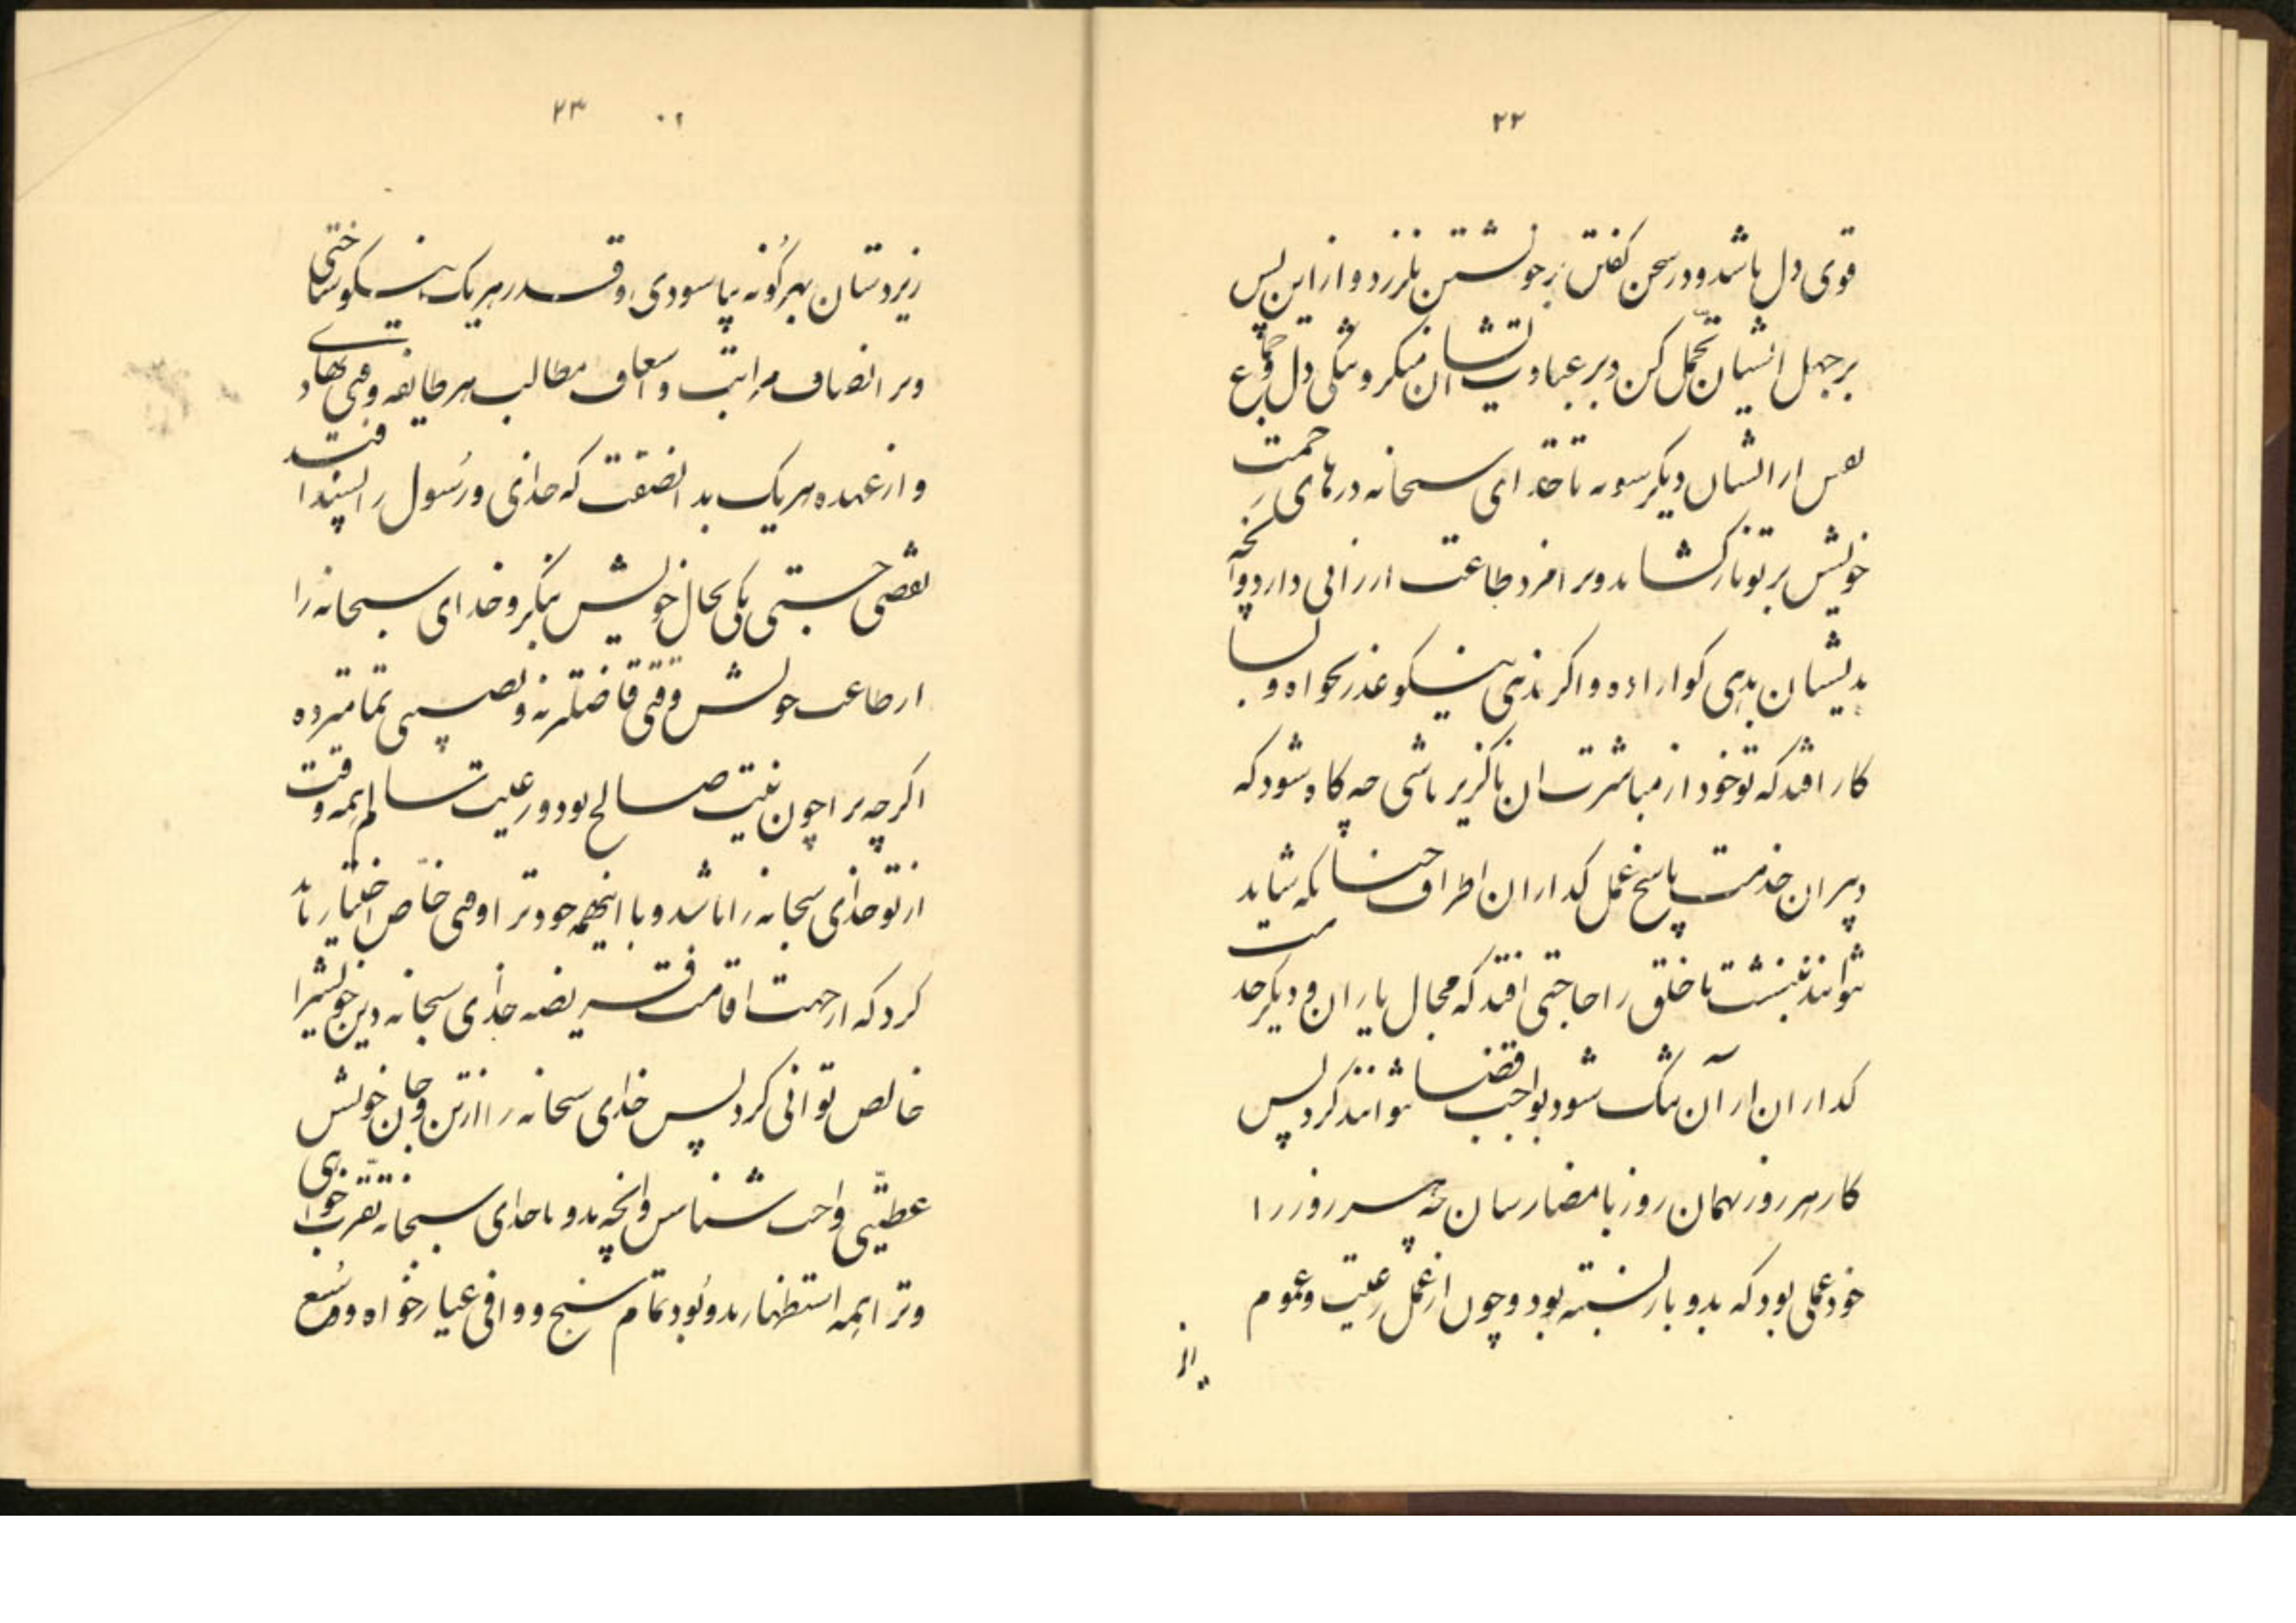 ۲۲
قوی دل باشد و در سخن گفتن بر خویشتن نلرزد و از این پس
بر جهل ایشان تحمل کن و بر عبادیت ایشان منکر و تنگی دل و
نفس از ایشان دیگر سو نه تا خدای سبحانه درهای رحمت
خویش بر تو باز کشاید و بر امزد طاعت ارزانی دارد و آنچه
بدیشان بدهی کوارا ده و اگر ندهی نیکو عذر بخواه و بسا
کار افتد که تو خود از مباشرت ان ناگزیر باشی چه گاه شود که
دبیران خدمت پاسخ عمل گذاران اطراف چنانکه شاید
نتوانند نبشت تا خلق را حاجتی افتد که مجال یاران و دیگر خدمت
گذاران از آن تنگ شود بواجب قضا نتوانند کرد پس
کار هر روز بهمان روز بامضا رسان چه هر روز را
خود عملی بود که بدو باز بسته بود و چون از عمل رعیت و عموم
۲۳
زیردستان بهر گونه بیاسودی و قدر هر یک نیکو شناختی
و بر انصاف مراتب و اسعاف مطالب هر طایفه وقتی نهادی
و از عهده هر یک بدانصفت که خدای و رسول را پسند افتد
تفصی جستی یکی بحال خویش بنگر و خدای سبحانه را
از طاعت خویش وقتی فاضلتر نه و نصیبی تمامتر ده
اگر چه ترا چون نیت صالح بود و رعیت سالم همه وقت
از تو خدای سبحانه را باشد و با اینهمه خود ترا وقتی خاص اختیار باید
کرد که از جهت اقامت فریضه خدای سبحانه دین خویشرا
خالص توانی کرد پس خدای سبحانه را از تن و جان خویش
عطیتی واجب شناس و آنچه بدو با خدای سبحانه تقرب خواهی
و ترا همه استظهار بدو بود تمام سنج و وافی عیار خواه و وسع